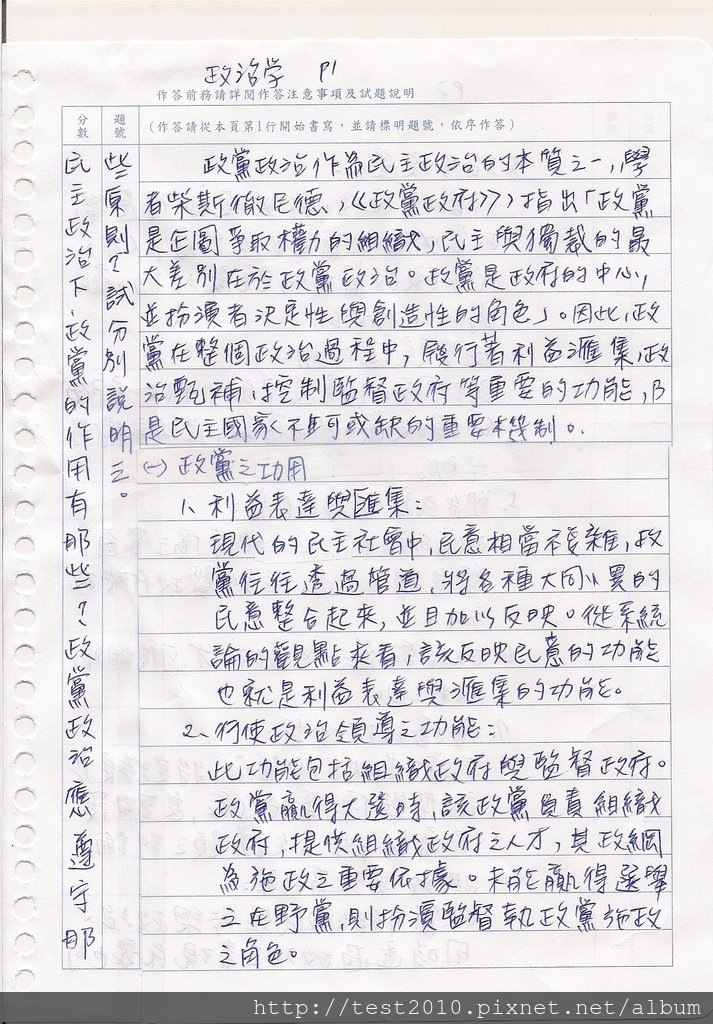 政治学 P1
作答前務請詳閱作答注意事項及試題說明
分數
題號
(作答請從本頁第1行開始書寫,並請標明題號,依序作答)
民主政治下、政黨的作用有那些?政黨政治應遵守那
些原則?試分別說明之。
政黨政治作為民主政治的本質之一,學
者柴斯徹尼德,《政黨政府》,指出「政黨
是企圖爭取權力的組織,民主與獨裁的最
大差別在於政黨政治。政黨是政府的中心,
並扮演者決定性與創造性的角色」。因此,政
黨在整個政治過程中,履行著利益滙集,政
治甄補、控制監督政府等重要的功能,
是民主國家不可或缺的重要機制。
(一) 政黨之功用
1、利益表達與匯集:
現代的民主社會中,民意相當複雜,政
黨往往透過管道,將各種大同小異的
民意整合起來,並且加以反映。從系統
論的觀點來看,該反映民意的功能
也就是利益表達與滙集的功能。
2、行使政治領導之功能:
此功能包括組織政府與監督政府。
政黨贏得大選時,該政黨負責組織
政府,提供組織政府之人才,其政綱
為施政之重要依據。未能贏得選舉
之在野黨,則扮演監督執政黨施政
之角色。
http://test2010.pixnet.net/album